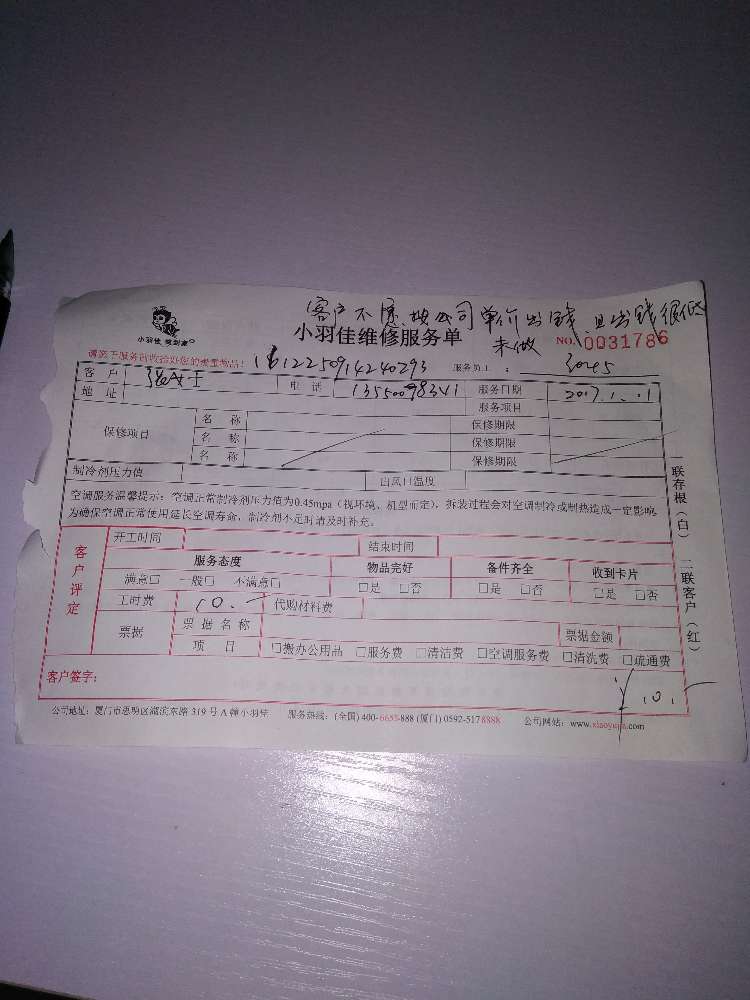 客户不愿按公司单价出钱,且出钱很低
未做
小羽佳 搬到家
小羽佳维修服务单
NO. 0031786
请签下服务时收拾好您的贵重物品!
1612250914240293
服务员工: 3045
客户 张女士 电话 13550098341 服务日期 2017.1.01
地址 服务项目
保修项目 名称 保修期限
名称 保修期限
名称 保修期限
制冷剂压力值 出风口温度
空调服务温馨提示:空调正常制冷剂压力值为0.45mpa(视环境、机型而定),拆装过程会对空调制冷或制热造成一定影响,
为确保空调正常使用延长空调寿命,制冷剂不足时请及时补充。
客户评定
开工时间 结束时间
服务态度 物品完好 备件齐全 收到卡片
满意□ 一般□ 不满意□ □是 □否 □是 □否 □是 □否
工时费 10.- 代购材料费
票据 票据名称 票据金额
项目 □搬办公用品 □服务费 □清洁费 □空调服务费 □清洗费 □疏通费
客户签字: ¥10.-
公司地址:厦门市思明区湖滨东路319号A幢小羽佳 服务热线:(全国)400-6655-888 (厦门)0592-5178888 公司网站:www.xiaoyujia.com
一联存根(白) 二联客户(红)